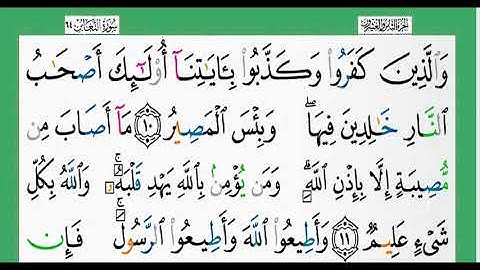 سُورَةُ التَّغَابُن ٦٤ الجزء الثامن والعشرون
وَٱلَّذِينَ كَفَرُوا۟ وَكَذَّبُوا۟ بِـَٔايَٰتِنَآ أُو۟لَٰٓئِكَ أَصْحَٰبُ
ٱلنَّارِ خَٰلِدِينَ فِيهَا ۖ وَبِئْسَ ٱلْمَصِيرُ ١٠ مَآ أَصَابَ مِن
مُّصِيبَةٍ إِلَّا بِإِذْنِ ٱللَّهِ ۗ وَمَن يُؤْمِنۢ بِٱللَّهِ يَهْدِ قَلْبَهُۥ ۚ وَٱللَّهُ بِكُلِّ
شَىْءٍ عَلِيمٌ ١١ وَأَطِيعُوا۟ ٱللَّهَ وَأَطِيعُوا۟ ٱلرَّسُولَ ۚ فَإِن